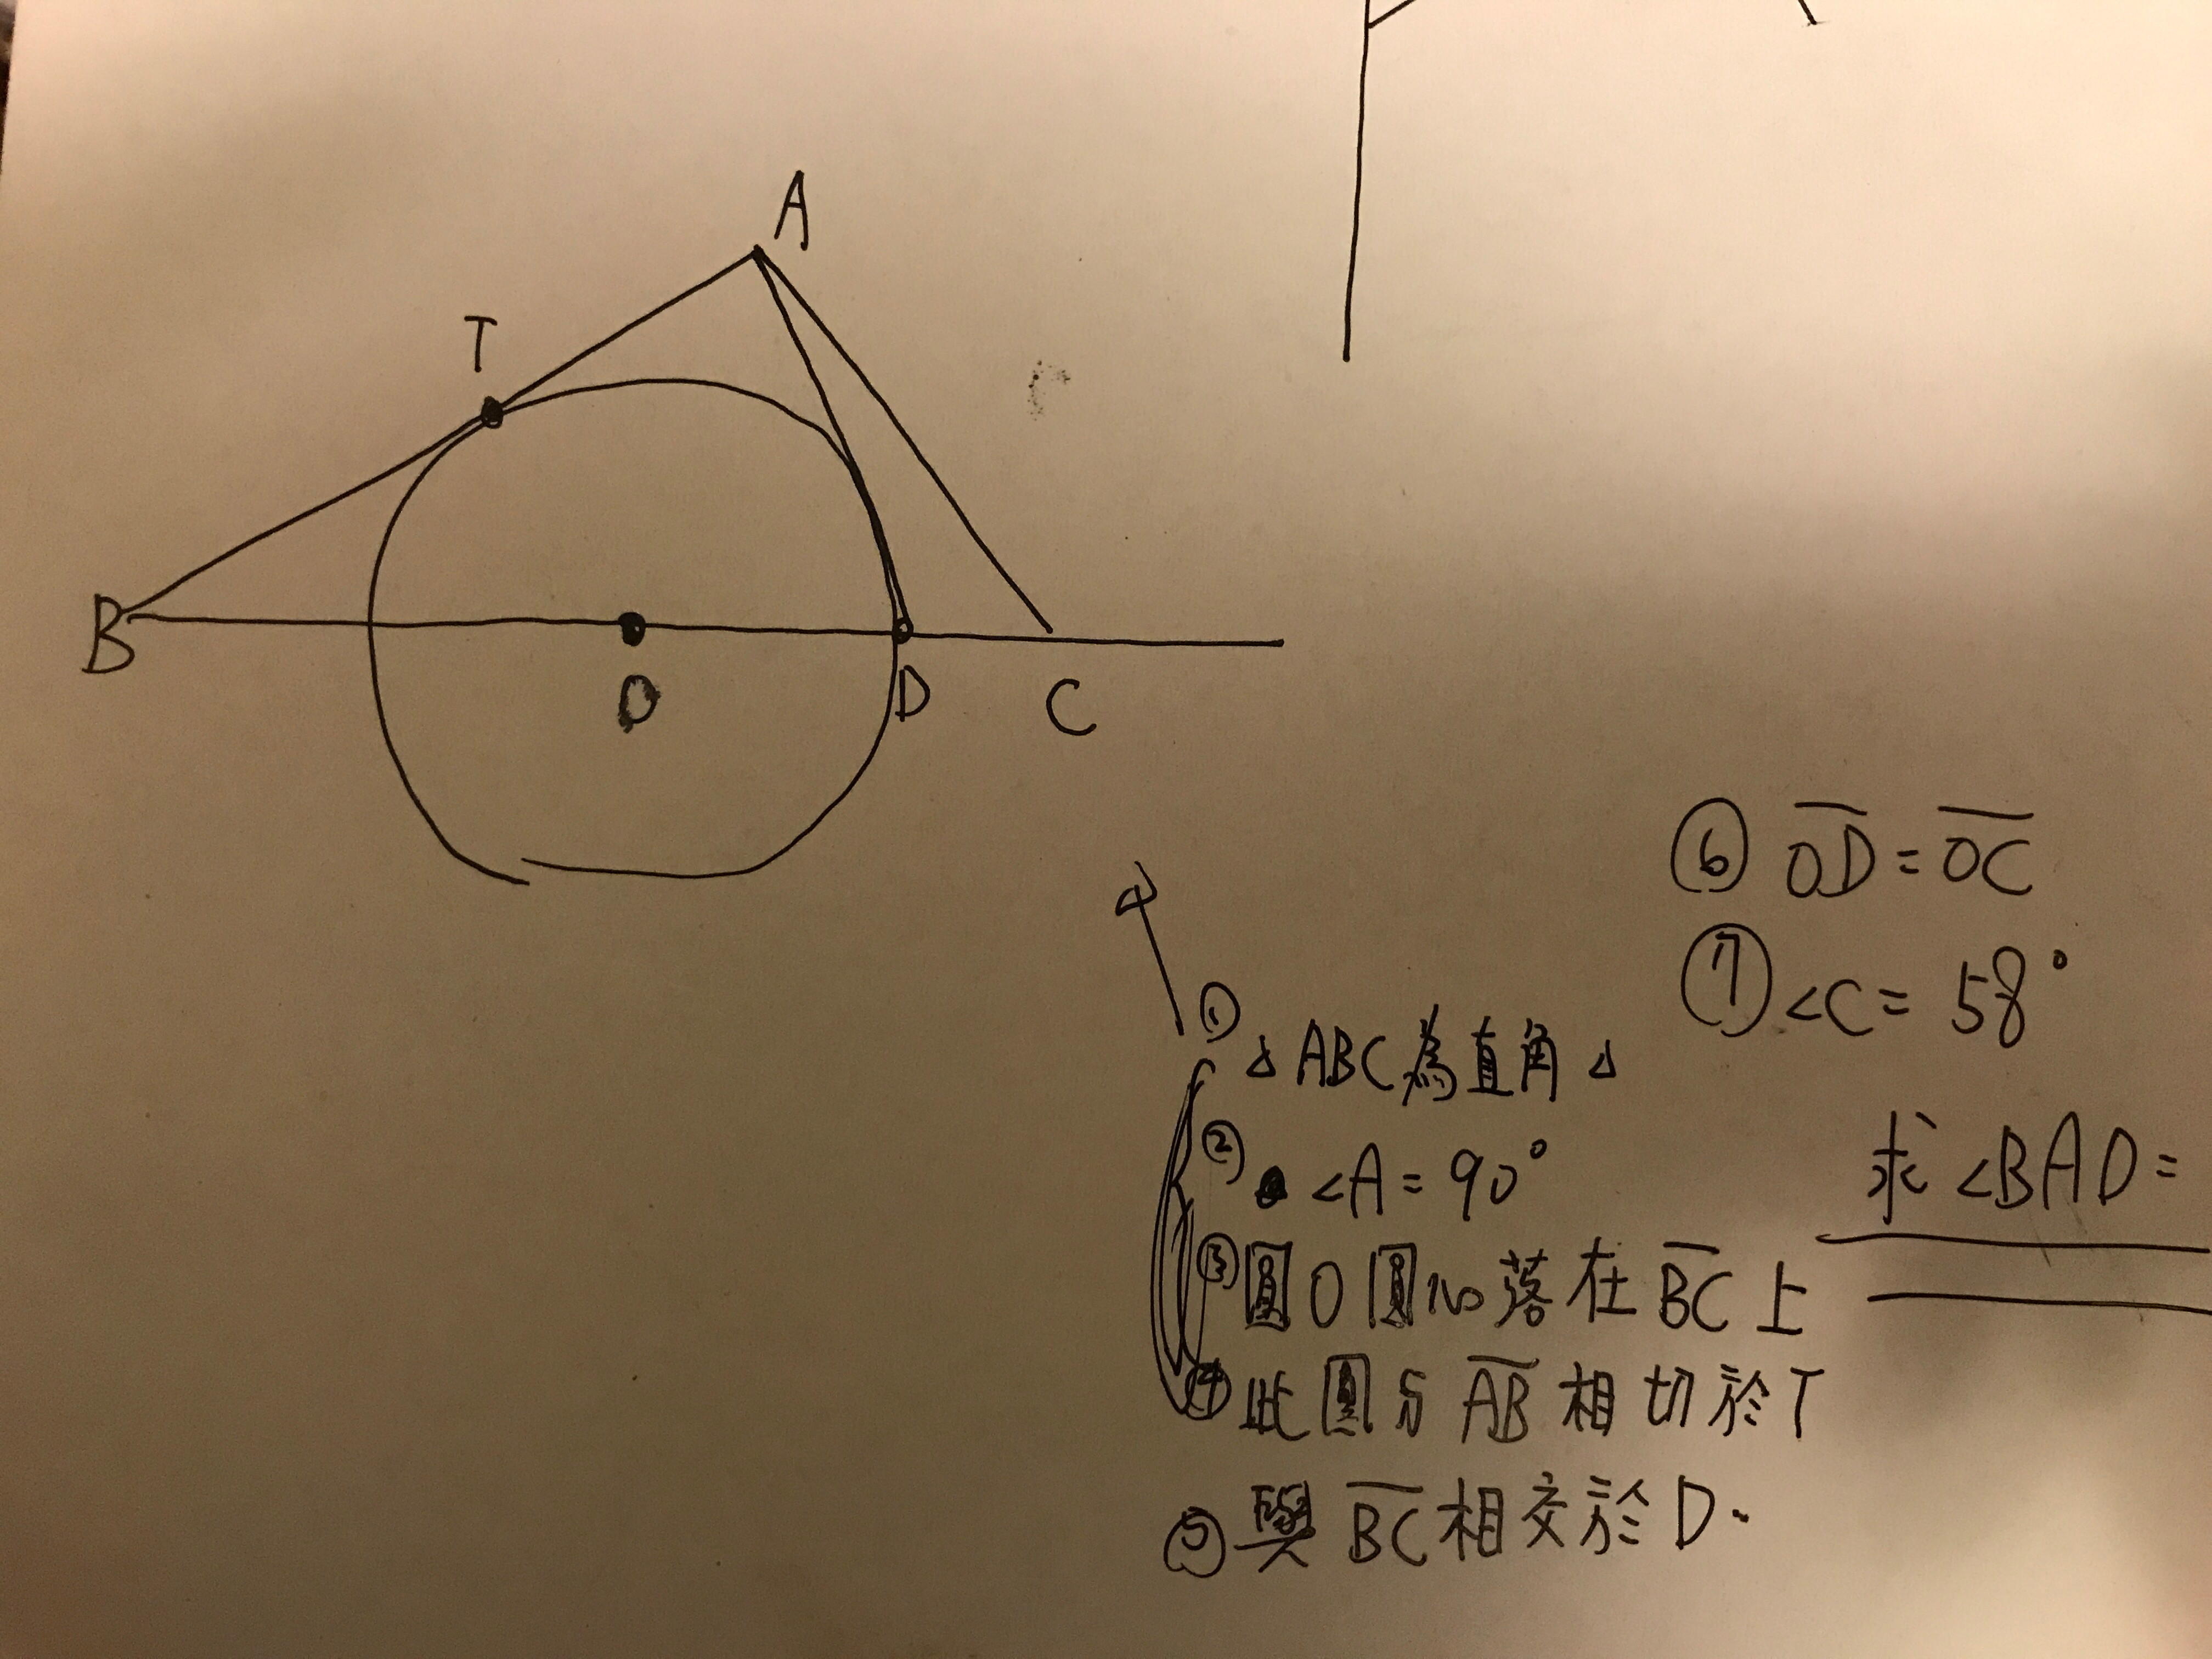 A
T
B
O
D
C
⑥ OD = OC
⑦ <C = 58°
① △ABC為直角△
② <A = 90°
求 <BAD =
③ 圓O圓心落在BC上
④ 此圓与AB相切於T
⑤ 與BC相交於D.